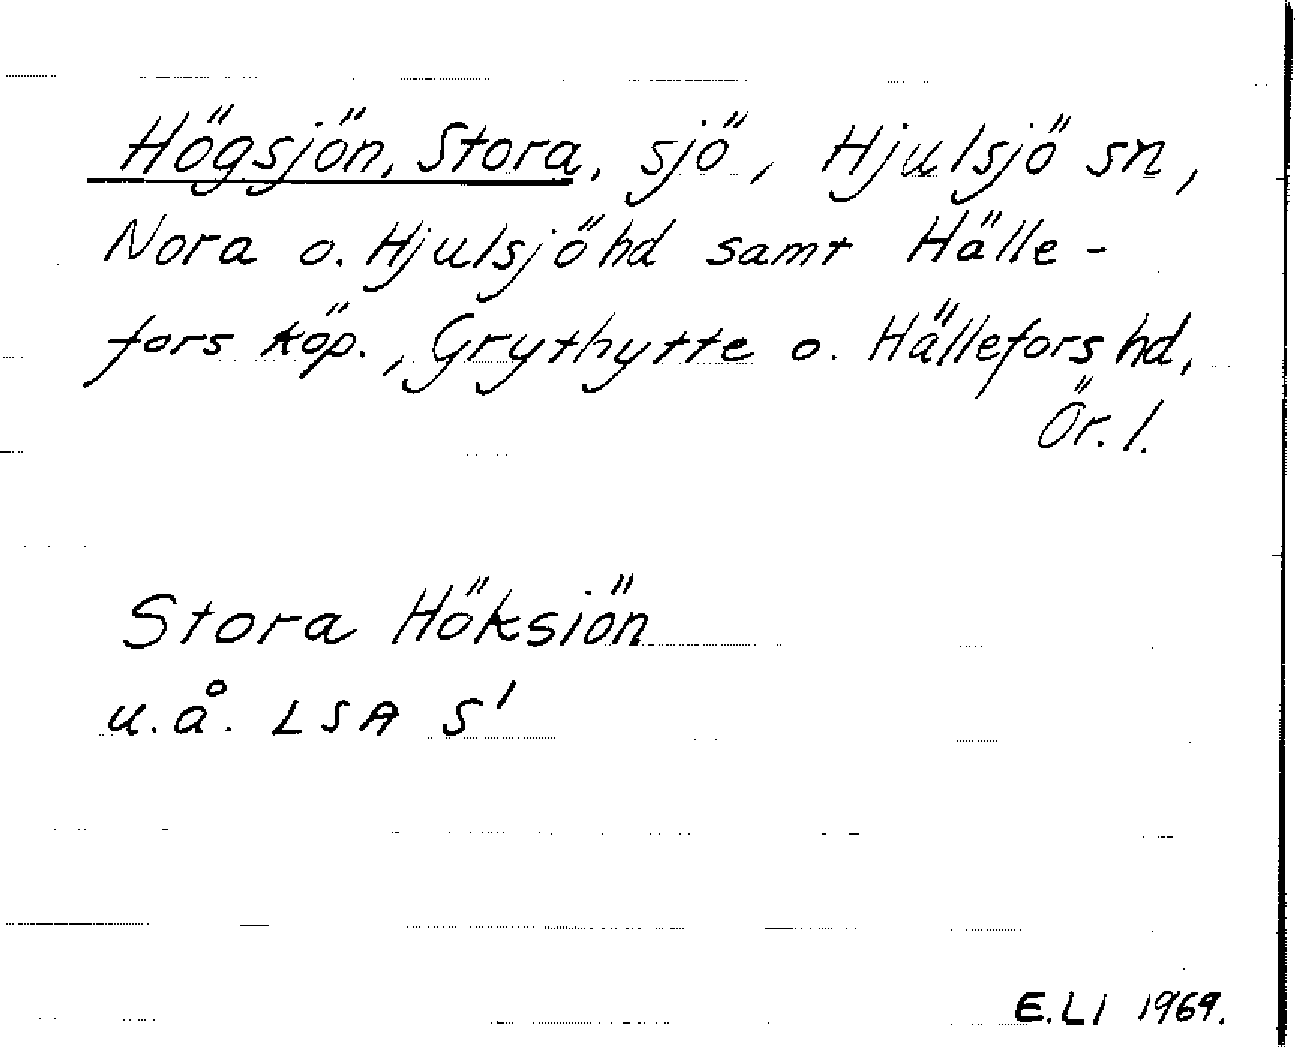 Högsjön, Stora, sjö, Hjulsjö sn,
Nora o. Hjulsjö hd samt Hälle-
fors köp., Grythytte o. Hällefors hd,
Ör. l.
Stora Höksiön
u.å. LSA S'
E.LI 1969.